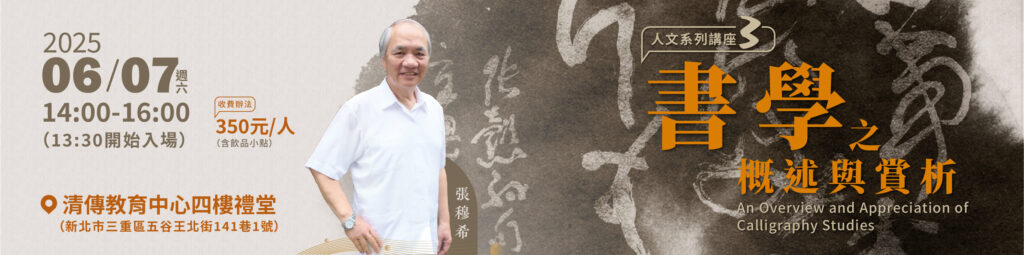 2025
06/07 週六
14:00-16:00
（13:30開始入場）
收費辦法
350元/人
（含飲品小點）
清傳教育中心四樓禮堂
（新北市三重區五谷王北街141巷1號）
張穆希
人文系列講座3
書學之
概述與賞析
An Overview and Appreciation of
Calligraphy Studies